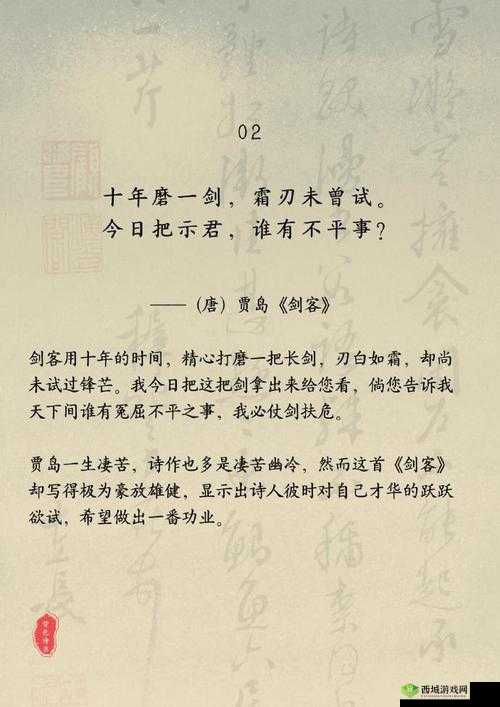 02
十年磨一剑，霜刃未曾试。
今日把示君，谁有不平事？
——（唐）贾岛《剑客》
剑客用十年的时间，精心打磨一把长剑，刃白如霜，却尚
未试过锋芒。我今日把这把剑拿出来给您看，倘您告诉我
天下间谁有冤屈不平之事，我必仗剑扶危。
贾岛一生凄苦，诗作也多是凄苦幽冷，然而这首《剑客》
却写得极为豪放雄健，显示出诗人彼时对自己才华的跃跃
欲试，希望做出一番功业。
西城游戏网